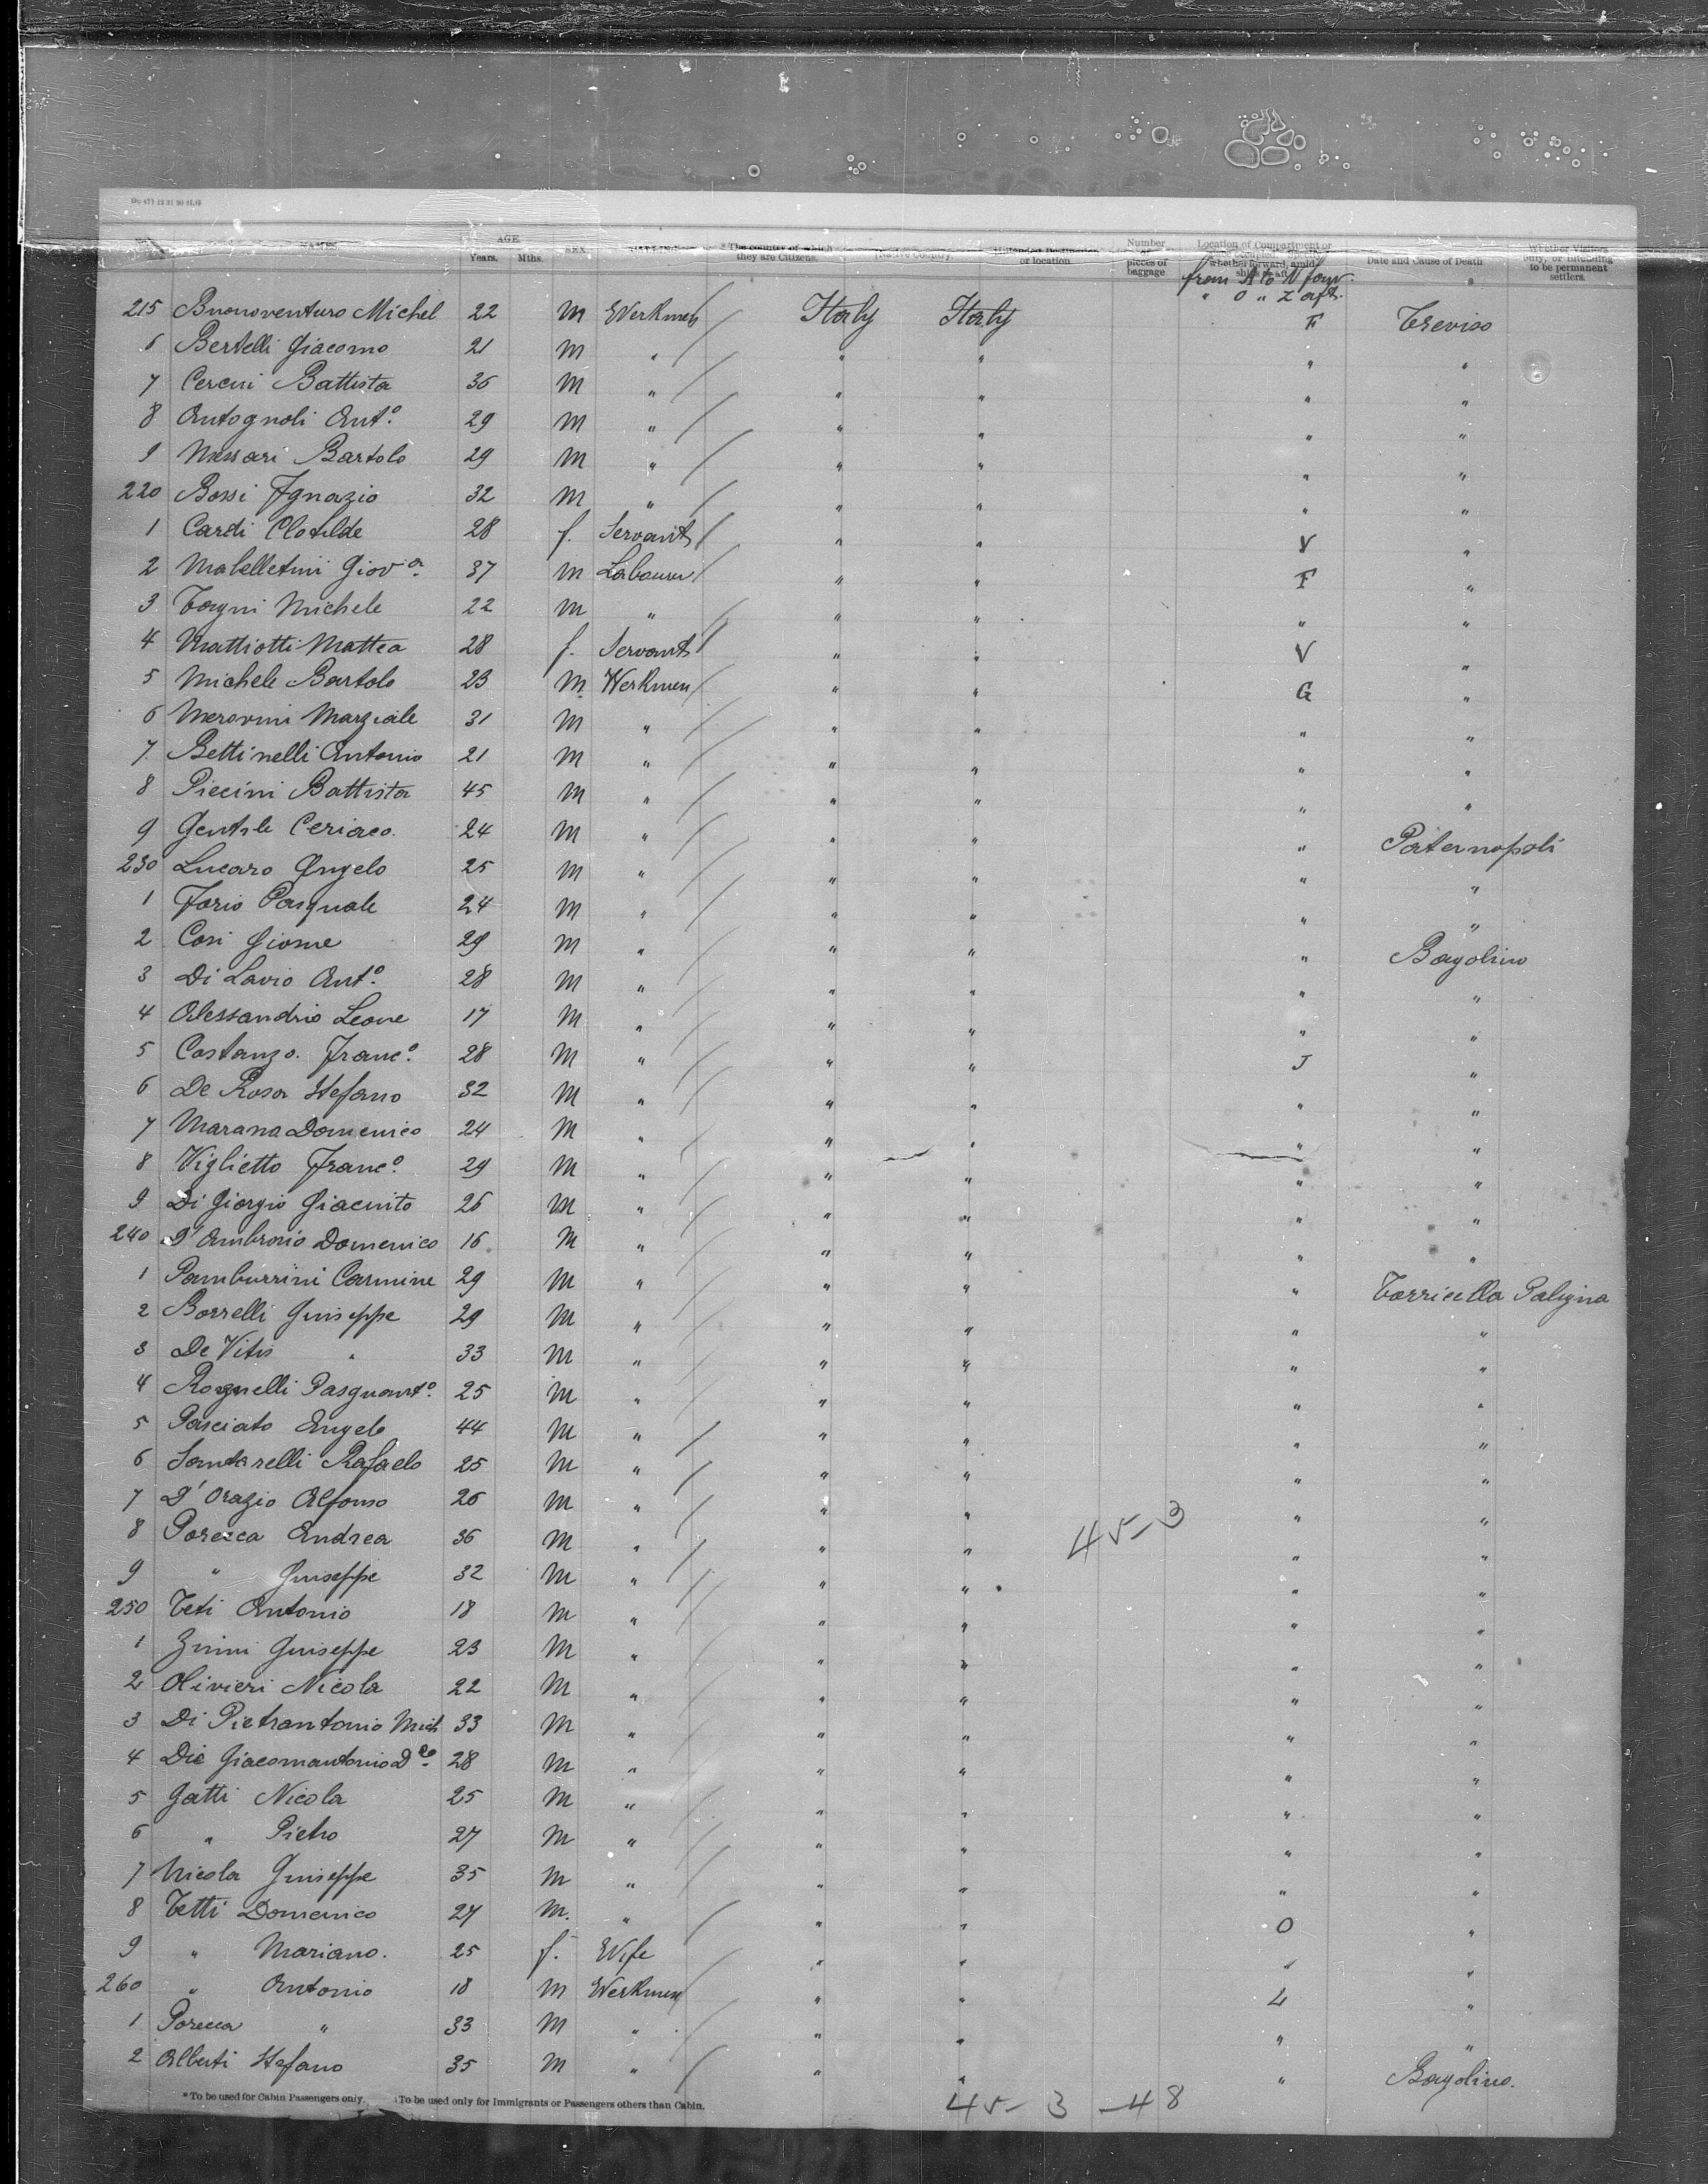 NAMES AGE SEX
Years. Mths.
*The country of which they are Citizens.
Native Country
Intended Destination or location
Number of pieces of baggage
Location of Compartment or
whether forward, amid ships or aft
Date and Cause of Death
to be permanent settlers.
from A to N forw.
" O " Z aft.
215 Buonoventuro Michel 22 M Werkmen Italy Italy F Treviso
6 Bertelli Giacomo 21 M " " " " "
7 Cereni Battista 36 M " " " " "
8 Antognoli Ant.o 29 M " " " " "
9 Massari Bartolo 29 M " " " " "
220 Bossi Ignazio 32 M " " " " "
1 Cardi Clotilde 28 f. Servant " " V "
2 Mabelletini Giov.a 37 M Labourer " " F "
3 Togni Michele 22 M " " " " "
4 Mattiotti Mattea 28 f. Servant " " V "
5 Michele Bartolo 23 M. Werkmen " " G "
6 Merovini Marziale 31 M " " " " "
7 Bettinelli Antonio 21 M " " " " "
8 Piecini Battista 45 M " " " " "
9 Gentile Ceriaco. 24 M " " " " Paternopoli
230 Lucaro Angelo 25 M " " " " "
1 Forio Pasquale 24 M " " " " "
2 Cosi Giosue 29 M " " " " Bagolino
3 Di Lavio Ant.o 28 M " " " " "
4 Alessandrio Leone 17 M " " " " "
5 Costanzo. Franc.o 28 M " " " J "
6 De Rosa Stefano 32 M " " " " "
7 Marana Domenico 24 M " " " " "
8 Viglietto Franc.o 29 M " " " " "
9 Di Giorgio Giacinto 26 M " " " " "
240 D'Ambrosio Domenico 16 M " " " " "
1 Pamburrini Carmine 29 M " " " " Torricella Paligna
2 Borrelli Guiseppe 29 M " " " " "
3 De Vitis " 33 M " " " " "
4 Rognelli Pasquant.o 25 M " " " " "
5 Pasciato Angelo 44 M " " " " "
6 Santarelli Rafaelo 25 M " " " " "
7 D'Orazio Alfonso 26 M " " " " "
8 Porecca Andrea 36 M " " " " "
45-3
9 " Guiseppe 32 M " " " " "
250 Teti Antonio 18 M " " " " "
1 Zinni Guiseppe 23 M " " " " "
2 Olivieri Nicola 22 M " " " " "
3 Di Pietrantonio Mich 33 M " " " " "
4 Die Giacomantonio D.co 28 M " " " " "
5 Gatti Nicola 25 M " " " " "
6 " Pietro 27 M " " " " "
7 Nicola Guiseppe 35 M " " " " "
8 Tetti Domenico 27 M. " " " O "
9 " Mariano. 25 f. Wife " " " "
260 " Antonio 18 M Werkmen " " L "
1 Porecca " 33 M " " " " "
2 Alberti Stefano 35 M " " " " Bagolino.
*To be used for Cabin Passengers only. †To be used only for Immigrants or Passengers others than Cabin.
45-3-48